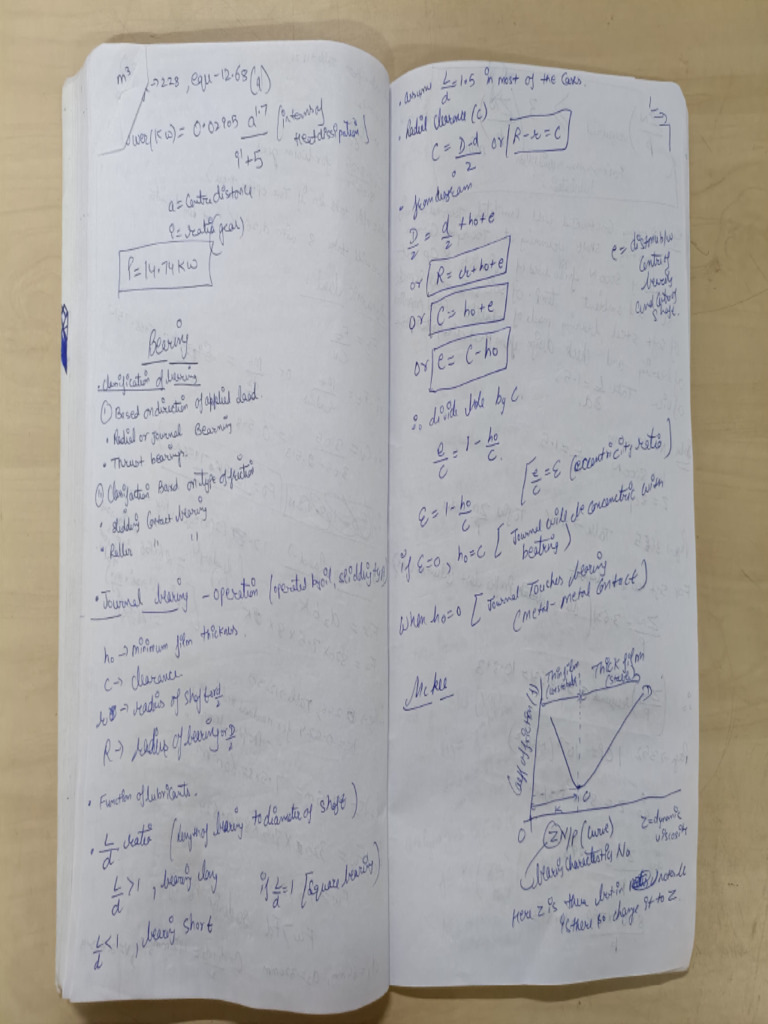 m³
→ 228, equ-12.68(a)
wer(KW) = 0.02905 a^1.7 / i+5 [interms of Heat dissipation]
a = Centre distance
i = ratio (gear)
P = 14.74 KW
Bearing
• Classification of bearing
① Based on direction of applied load
• Radial or Journal Bearning
• Thrust bearings.
② Classification Based on type of friction
• Slidding Contact bearing
• Roller " "
• Journal bearing - operation (operated by oil, slidding
h₀ → minimum film thickness.
C → Clearance
→ radius of shaft = d/2
R → radius of bearing = D/2
• Function of lubricants.
• L/d ratio (length of bearing to diameter of shaft)
L/d > 1, bearing long if L/d = 1 [Square bearing]
L/d < 1, bearing short
• assume L/d = 1.5 in most of the Cases.
• Radial clearance (C)
C = D-d / 2 or R - r = C
• from diagram
D/2 = d/2 + h₀ + e
or R = r + h₀ + e
or C = h₀ + e
or e = C - h₀
e = distance b/w
Centre of
bearing
and Centre of
Shaft.
∴ divide by C
e/C = 1 - h₀/C
[e/C = ε (eccentricity ratio]
ε = 1 - h₀/C
if ε = 0, h₀ = C [Journal will be concentric with
bearing)
When h₀ = 0 [Journal Touches bearing
(metal-metal Contact)
McKee
Thin film
Thick film
Coeff of friction
K
C
O
ZN/P (Curve)
Z = dynamic
viscosity
bearing Characteristics No
Here Z is there but in
is there so change it to Z.